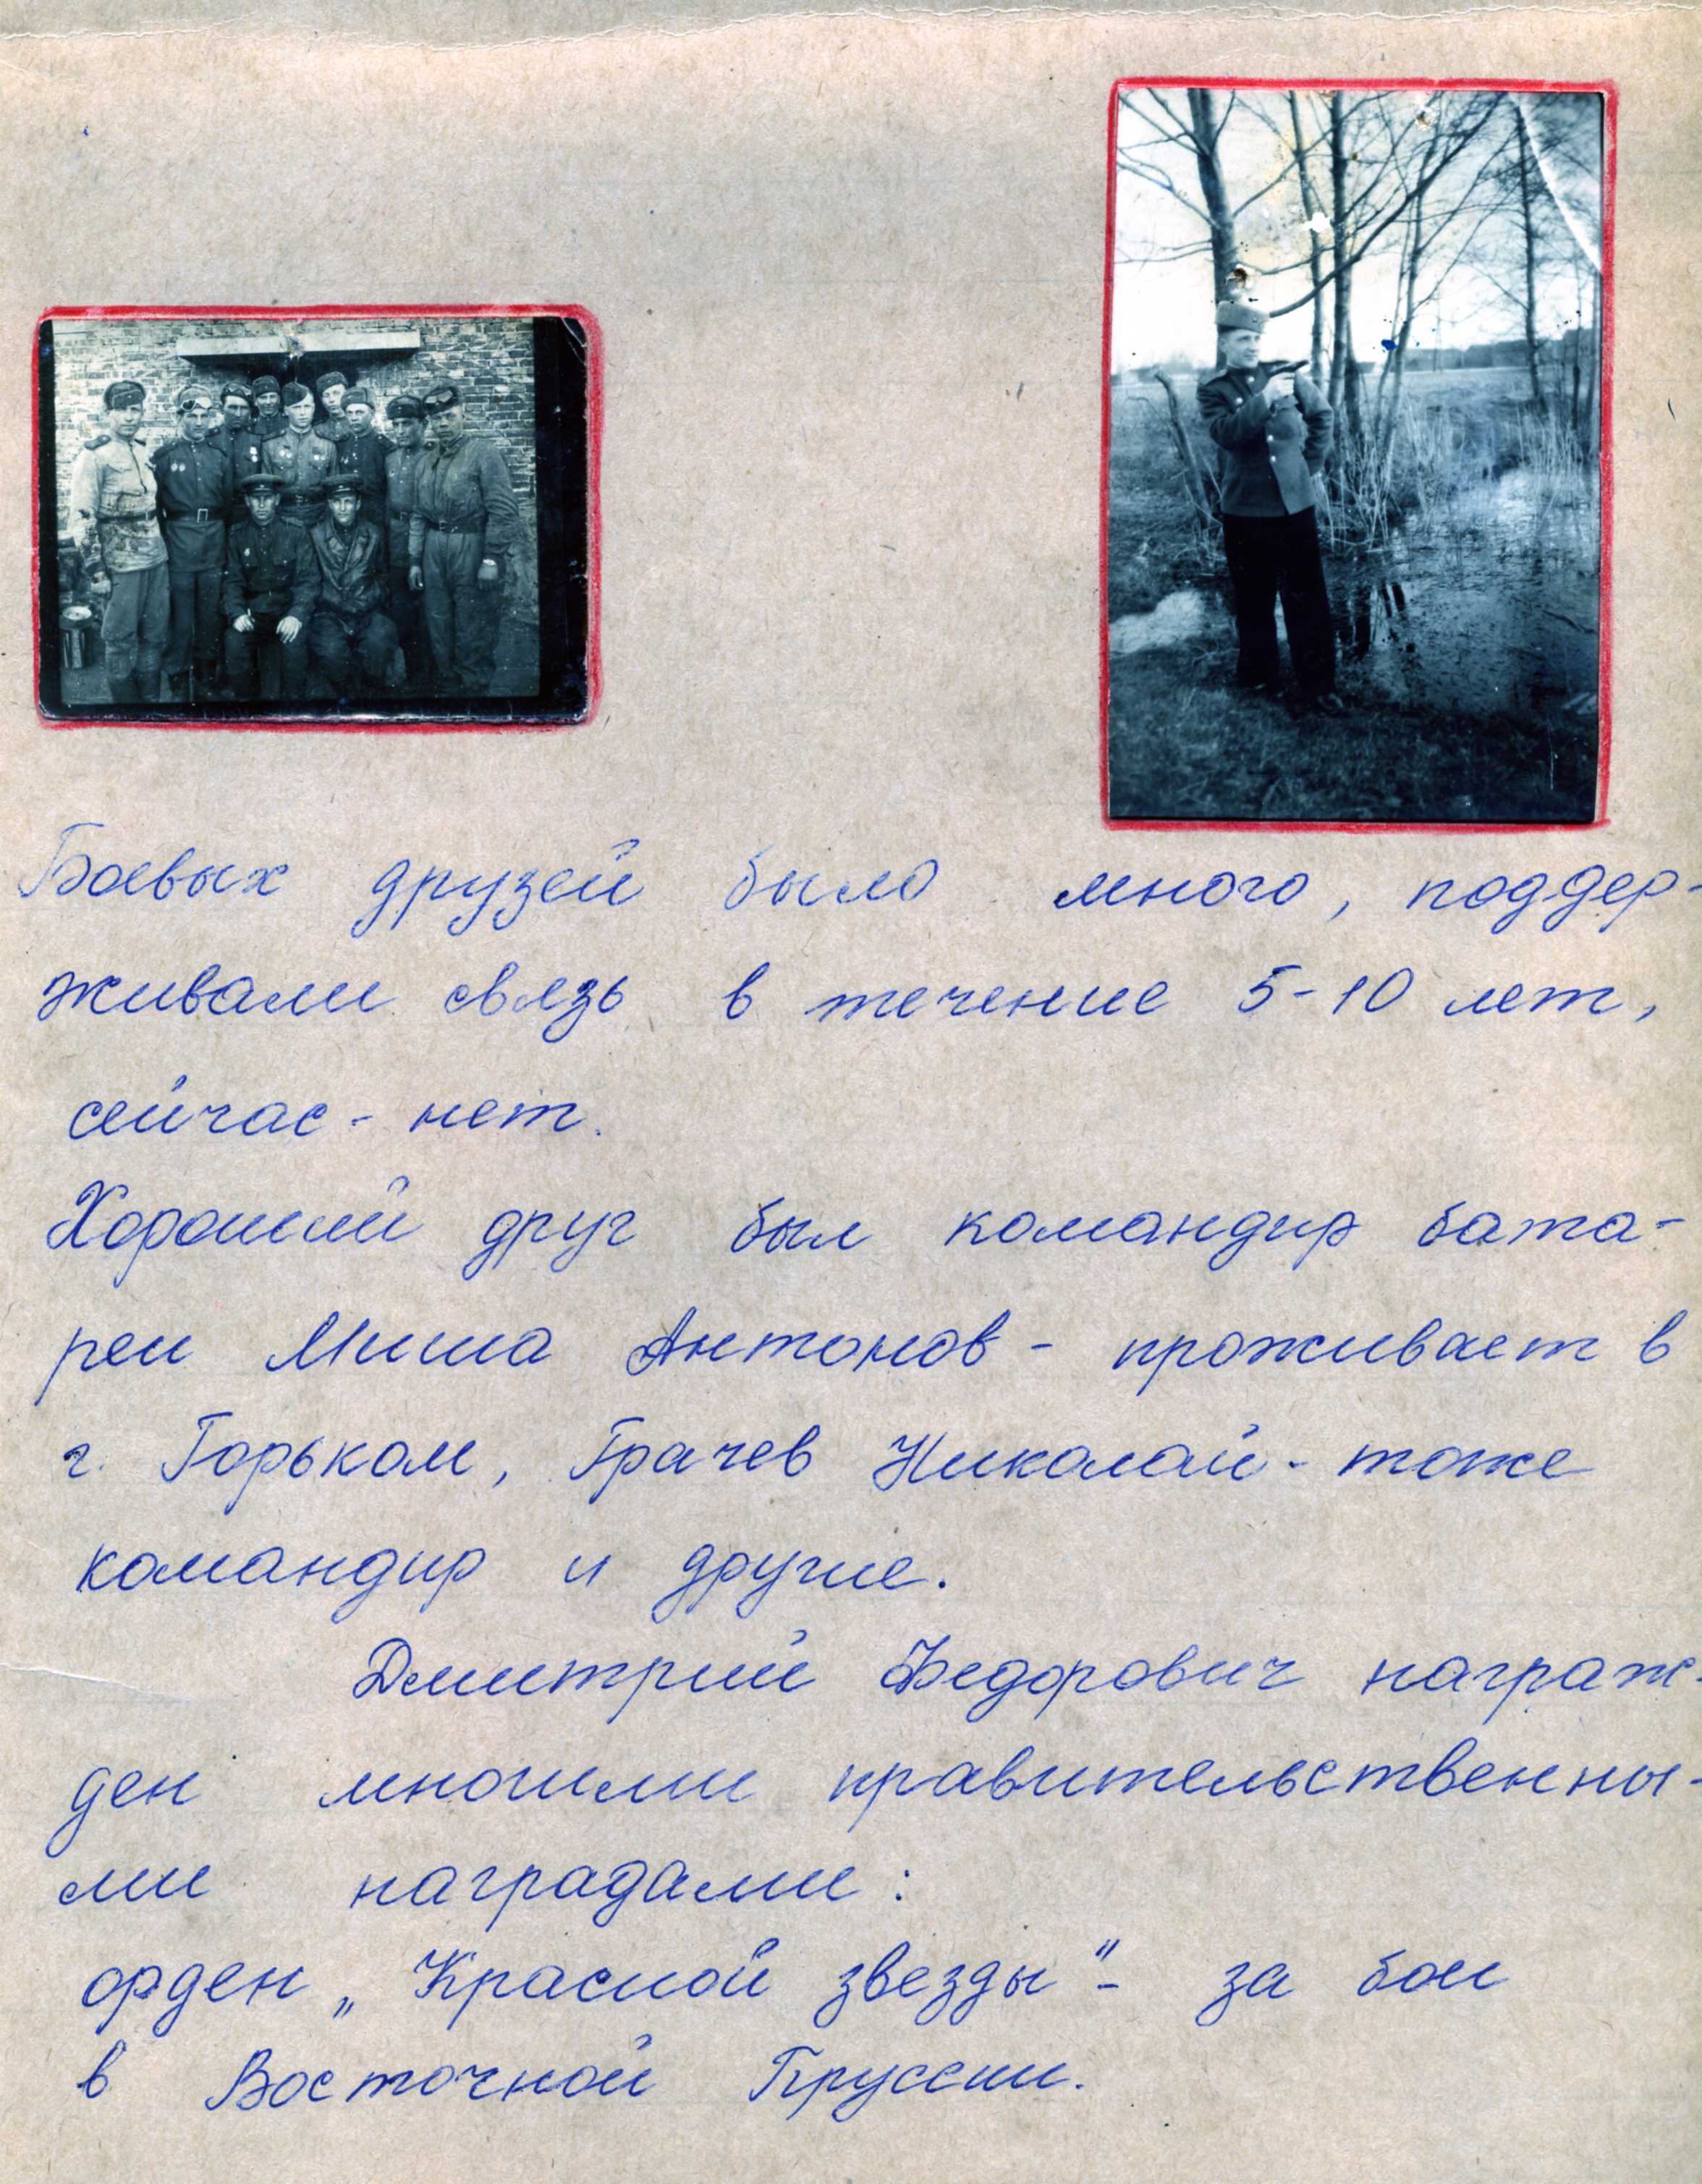 Боевых друзей было много, поддер-
живали связь в течение 5-10 лет,
сейчас - нет.
Хороший друг был командир бата-
реи Миша Антонов - проживает в
г. Горьком, Грачев Николай - тоже
командир и другие.
Дмитрий Федорович награж-
ден многими правительственны-
ми наградами:
орден „Красной звезды" - за бои
в Восточной Пруссии.